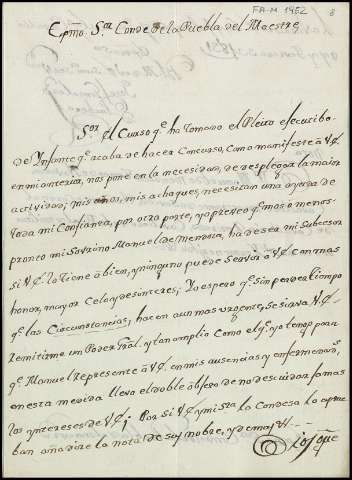 FA-M 1452
8
Exmo. Sor. Conde de la Puebla del Maestre
Sor. el Curso qe. ha tomado el Pleito
de Infante qe. acaba de hacer Concurso, Como manifesté a VE
en mi anterior, nos pone en la necesidad de desplegar la maior
actividad; mis años, mis achaques, necesitan una ayuda de
toda mi Confianza, por otra parte, ya preveo qe. mas o menos
pronto mi Sobrino Manuel de Mendoza, ha de ser mi Subcesor
si VE. lo tiene à bien, y ninguno puede Servir à VE con mas
honor, mayor Celo y desinteres; Yo espero qe. sin perder tiempo
qe. las Circunstancias, hacen aun mas urgente, se sirva VE.
remitirme un Poder Gral. y tan amplio Como el qe. yo tengo para
qe. Manuel represente à VE. en mis ausencias y enfermedades,
en esta medida llevo el doble objeto de no descuidar jamas
los yntereses de VE; Por si VE. y mi Sra. la Condesa lo aprue
ban añadiré la nota de su nobre, y demas